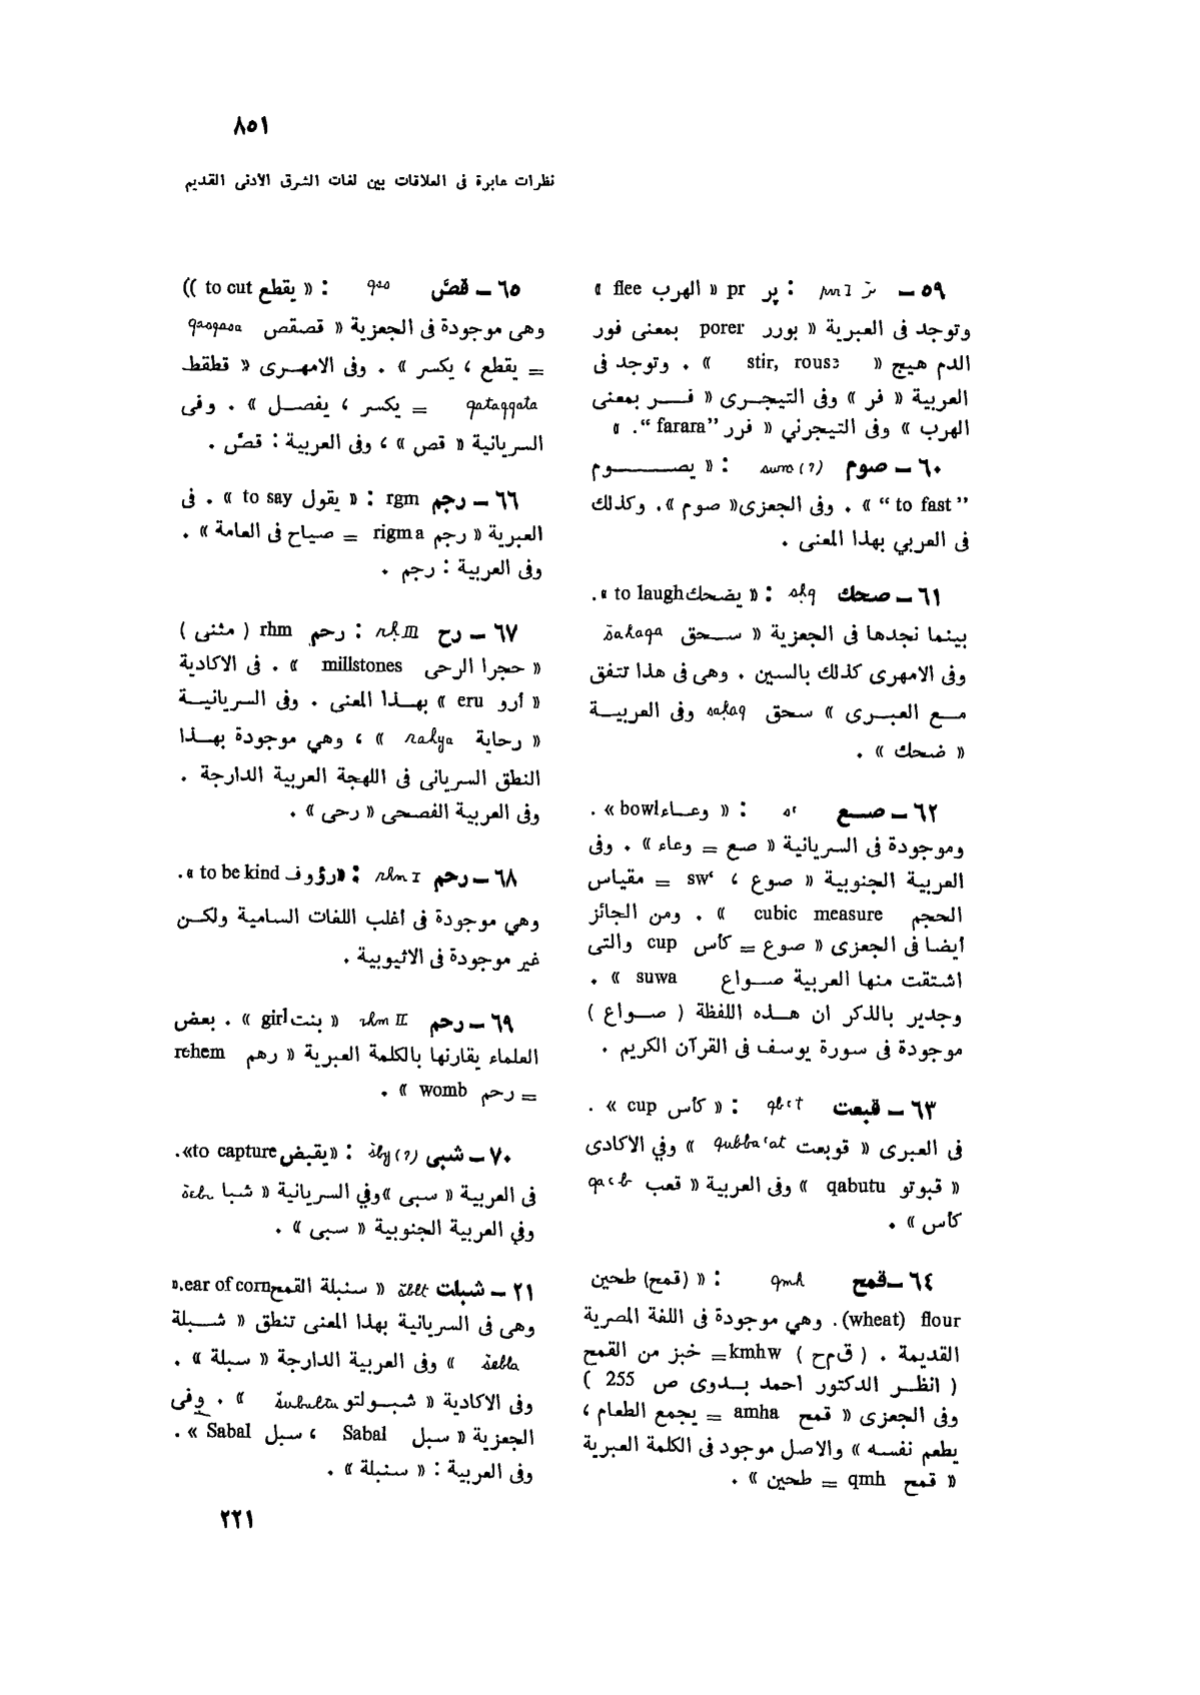 ٨٥١
نظرات عابرة فى العلاقات بين لغات الشرق الأدنى القديم
٥٩ – : پر pr « الهرب flee »
وتوجد فى العبرية « بورر porer بمعنى فور
الدم هيج « stir, rouse » . وتوجد فى
العربية « فر » وفى التيجرى « فــر بمعنى
الهرب » وفى التيجرني « فرر “farara” . »
٦٠ – صوم (?) : « يصــــــوم
“ to fast ” » . وفى الجعزى « صوم » . وكذلك
فى العربي بهذا المعنى .
٦١ – صحك ṣḥq : « يضحك to laugh » .
بينما نجدها فى الجعزية « سـحق šaḥaqa
وفى الامهرى كذلك بالسين . وهى فى هذا تتفق
مـع العبـرى » سحق saḥaq وفى العربيـة
« ضحك » .
٦٢ – صــع : « وعـاء bowl » .
وموجودة فى السريانية « صع = وعاء » . وفى
العربية الجنوبية « صوع ، sw‘ = مقياس
الحجم cubic measure » . ومن الجائز
أيضا فى الجعزى « صوع = كأس cup والتى
اشتقت منها العربية صـواع suwa » .
وجدير بالذكر ان هـذه اللفظة ( صـواع )
موجودة فى سورة يوسف فى القرآن الكريم .
٦٣ – قبعت qbʿt : « كأس cup » .
فى العبرى « قوبعت qubbaʿat » وفي الاكادى
« قبوتو qabutu » وفى العربية « قعب qaʿb
كأس » .
٦٤ – قمح qmḥ : « (قمح) طحين
(wheat) flour . وهي موجودة فى اللغة المصرية
القديمة . ( قمح ) kmhw = خبز من القمح
( انظـر الدكتور احمد بـدوى ص 255 )
وفى الجعزى « قمح amha = يجمع الطعام ،
يطعم نفسه » والاصل موجود فى الكلمة العبرية
« قمح qmh = طحين » .
٦٥ – قصّ : « يقطع to cut ))
وهى موجودة فى الجعزية « قصقص qasqasa
= يقطع ، يكسر » . وفى الامهـرى « قطقط
qataqqata = يكسر ، يفصـل » . وفى
السريانية « قص » ، وفى العربية : قصّ .
٦٦ – رجم rgm : « يقول to say » . فى
العبرية « رجم rigma = صياح فى العامة » .
وفى العربية : رجم .
٦٧ – رح : رحم rhm ( مثنى )
« حجرا الرحى millstones » . فى الاكادية
« أرو eru » بهـذا المعنى . وفى السريانيـة
« رحاية raḥya » ، وهي موجودة بهـذا
النطق السريانى فى اللهجة العربية الدارجة .
وفى العربية الفصحى « رحى » .
٦٨ – رحم rḥm I : «رؤوف to be kind » .
وهي موجودة فى أغلب اللغات السامية ولكـن
غير موجودة فى الاثيوبية .
٦٩ – رحم rḥm II « بنت girl » . بعض
العلماء يقارنها بالكلمة العبرية « رهم rehem
= رحم womb » .
٧٠ – شبى šby (?) : «يقبض to capture» .
فى العربية « سبى » وفي السريانية « شبا
وفي العربية الجنوبية « سبى » .
٢١ – شبلت šblt « سنبلة القمح ear of corn. »
وهى فى السريانية بهذا المعنى تنطق « شــبلة
šebla » وفى العربية الدارجة « سبلة » .
وفى الاكادية « شبـولتو šubultu » . وفى
الجعزية « سبل Sabal ، سبل Sabal » .
وفى العربية : « سنبلة » .
٢٢١